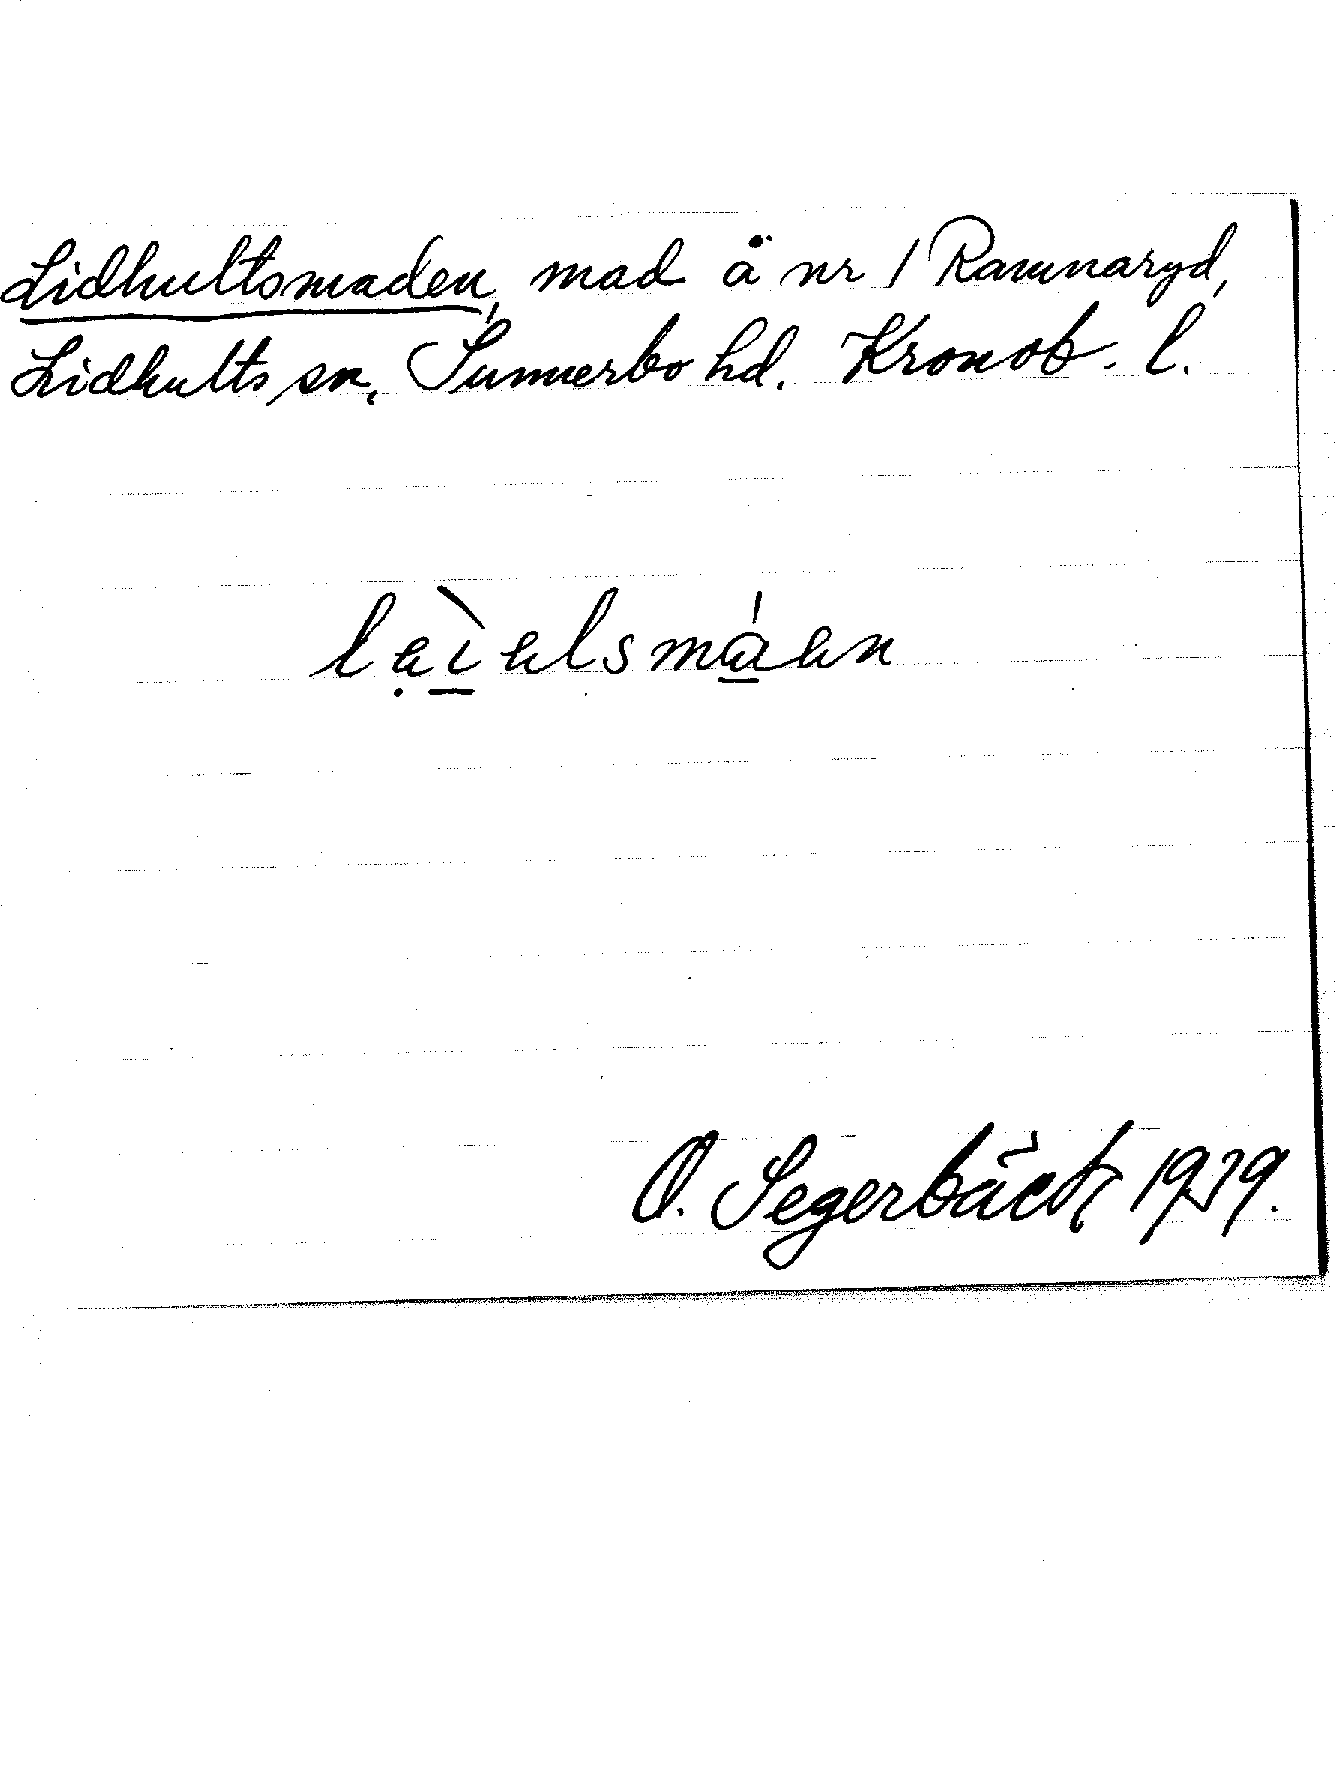 Lidhultsmaden, mad å nr 1 Ramnaryd,
Lidhults sn, Sunnerbo hd. Kronob. l.
laìulsmáen
O. Segerbäck 1939.